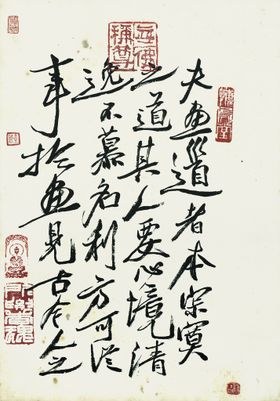 夫畫道者本寂寞
之道其人要心境清
逸不慕名利方可從
事於畫見古今之